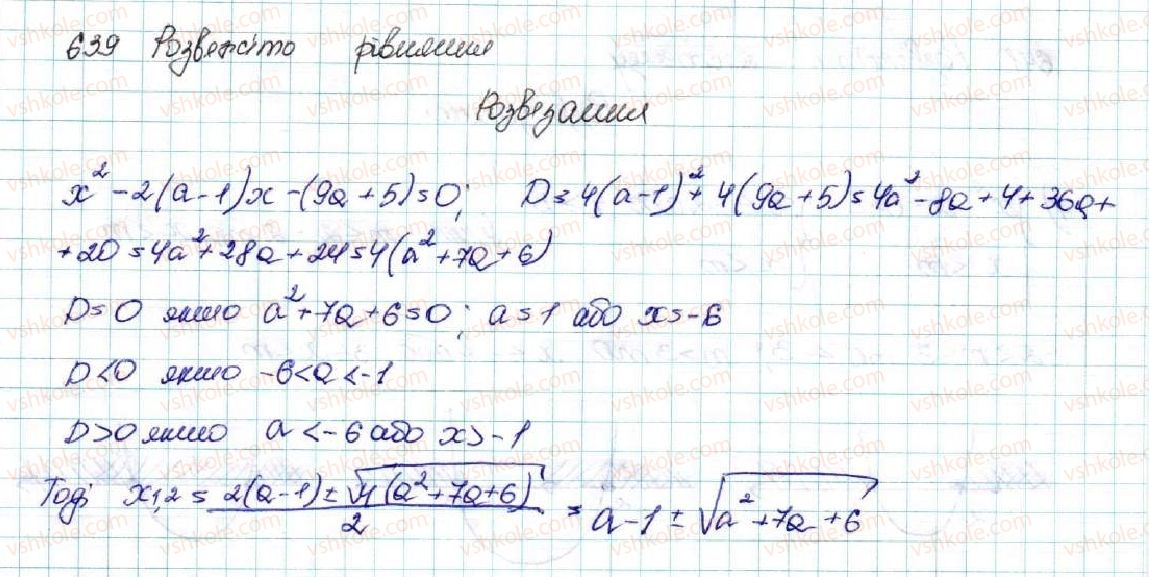 639 Розвежіто рівняння
Розвезання
x² - 2(a-1)x - (9a+5) = 0; D = 4(a-1)² + 4(9a+5) = 4a² - 8a + 4 + 36a +
+ 20 = 4a² + 28a + 24 = 4(a² + 7a + 6)
D = 0 якшо a² + 7a + 6 = 0; a = 1 або x = -6
D < 0 якшо -6 < a < -1
D > 0 якшо a < -6 або x > -1
Тоді x1,2 = (2(a-1) ± √(4(a² + 7a + 6)))/2 = a - 1 ± √(a² + 7a + 6)
vshkole.com